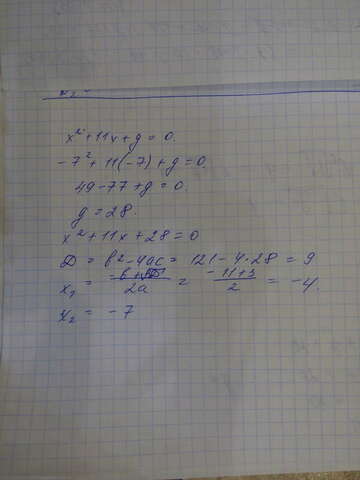 x² + 11x + g = 0.
-7² + 11(-7) + g = 0.
49 - 77 + g = 0.
g = 28.
x² + 11x + 28 = 0
D = b² - 4ac = 121 - 4·28 = 9
x₁ = (-b + √D) / 2a = (-11+3) / 2 = -4.
x₂ = -7